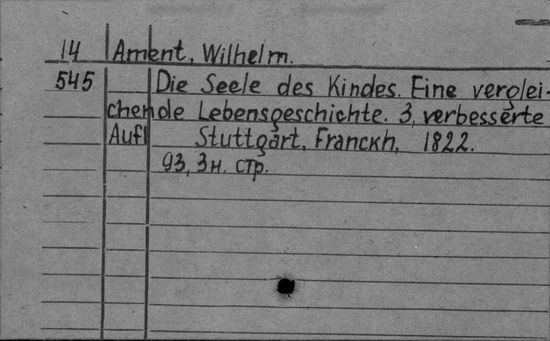 14 Ament, Wilhelm.
545 Die Seele des Kindes. Eine verglei-
chende Lebensgeschichte. 3, verbesserte
Aufl Stuttgart, Franckh, 1822.
93, 3 н. стр.